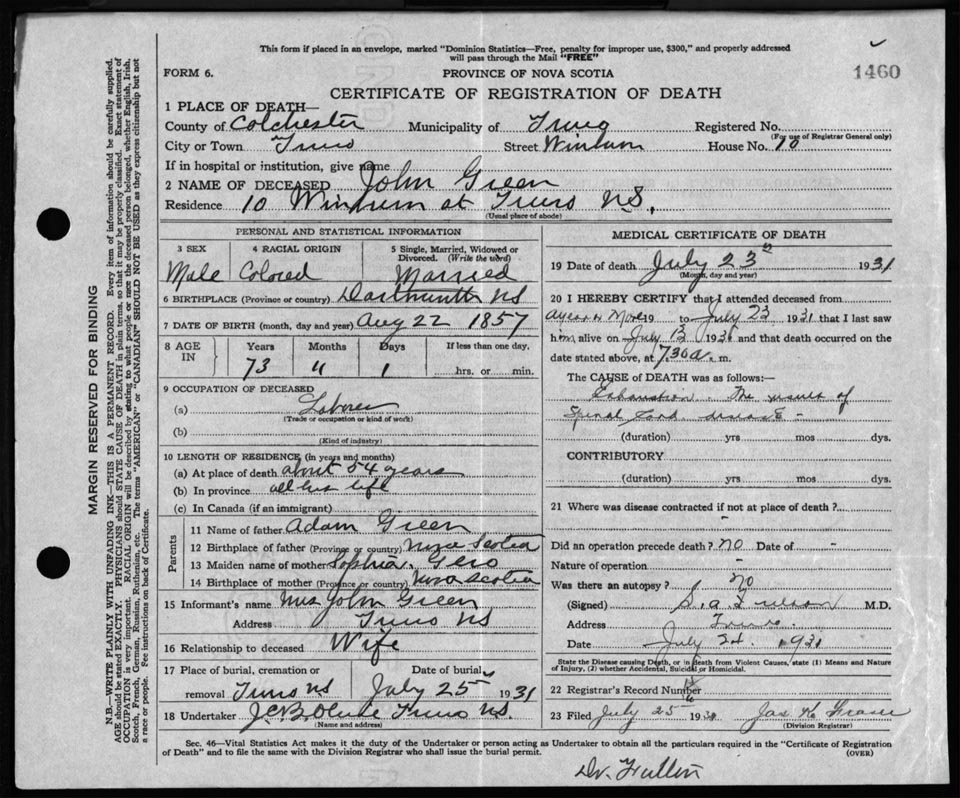 This form if placed in an envelope, marked "Dominion Statistics—Free, penalty for improper use, $300," and properly addressed
will pass through the Mail "FREE"
1460
FORM 6.
PROVINCE OF NOVA SCOTIA
CERTIFICATE OF REGISTRATION OF DEATH
1 PLACE OF DEATH—
County of Colchester Municipality of Truro Registered No.
(For use of Registrar General only)
City or Town Truro Street House No. 10
If in hospital or institution, give name
2 NAME OF DECEASED John Green
Residence 10 at Truro N.S.
(Usual place of abode)
PERSONAL AND STATISTICAL INFORMATION
3 SEX 4 RACIAL ORIGIN 5 Single, Married, Widowed or
Divorced. (Write the word)
Male Colored Married
6 BIRTHPLACE (Province or country) Dartmouth NS
7 DATE OF BIRTH (month, day and year) Aug 22 1857
8 AGE IN Years Months Days If less than one day.
73 11 1 hrs. or min.
9 OCCUPATION OF DECEASED
(a) Laborer
(Trade or occupation or kind of work)
(b)
(Kind of industry)
10 LENGTH OF RESIDENCE (in years and months)
(a) At place of death about 54 years
(b) In province all his life
(c) In Canada (if an immigrant)
Parents
11 Name of father Adam Green
12 Birthplace of father (Province or country) Nova Scotia
13 Maiden name of mother Sophia
14 Birthplace of mother (Province or country) Nova Scotia
15 Informant's name Mrs John Green
Address Truro NS
16 Relationship to deceased Wife
17 Place of burial, cremation or Date of burial
removal Truro NS July 25 1931
18 Undertaker J.C.B. Olive Truro NS.
(Name and address)
MEDICAL CERTIFICATE OF DEATH
19 Date of death July 23 1931
(Month, day and year)
20 I HEREBY CERTIFY that I attended deceased from
a year or more 19 to July 23 1931 that I last saw
him alive on July 13 1931 and that death occurred on the
date stated above, at 7.30 a. m.
The CAUSE of DEATH was as follows:—
Exhaustion. The result of
Spinal Cord disease -
(duration) yrs mos dys.
CONTRIBUTORY
(duration) yrs mos dys.
21 Where was disease contracted if not at place of death?
-
Did an operation precede death? no Date of -
Nature of operation
Was there an autopsy? no
(Signed) M.D.
Address Truro.
Date July 24 1931
State the Disease causing Death, or in death from Violent Causes, state (1) Means and Nature
of Injury, (2) whether Accidental, Suicidal or Homicidal.
22 Registrar's Record Number
23 Filed July 25 1931 Jas
(Division Registrar)
Sec. 46—Vital Statistics Act makes it the duty of the Undertaker or person acting as Undertaker to obtain all the particulars required in the "Certificate of Registration
of Death" and to file the same with the Division Registrar who shall issue the burial permit. (OVER)
MARGIN RESERVED FOR BINDING
N.B.—WRITE PLAINLY WITH UNFADING INK—THIS IS A PERMANENT RECORD. Every item of information should be carefully supplied.
AGE should be stated EXACTLY. PHYSICIANS should STATE CAUSE OF DEATH in plain terms, so that it may be properly classified. Exact statement of
OCCUPATION is very important. RACIAL ORIGIN will be described by stating to what people or race the deceased person belonged, whether English, Irish,
Scotch, French, German, Russian, Ruthenian, etc. The terms "AMERICAN" or "CANADIAN" SHOULD NOT BE USED as they express citizenship but not
a race or people. Fee instructions on back of Certificate.